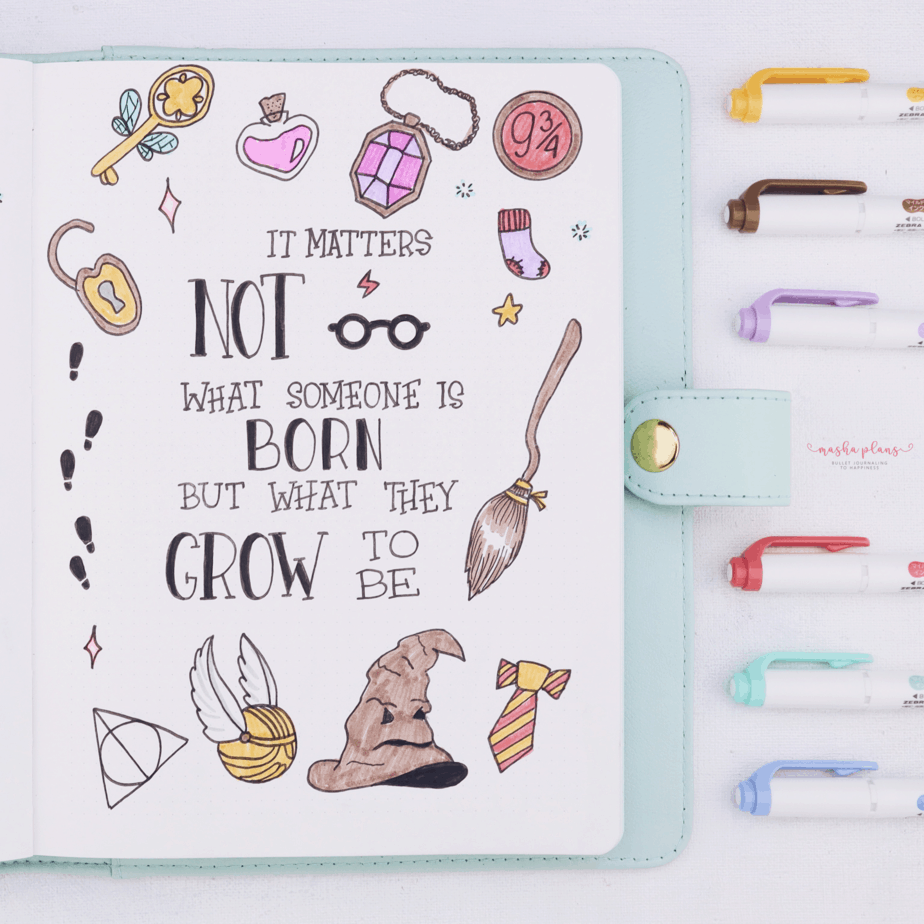 9 3/4
IT MATTERS
NOT
WHAT SOMEONE IS
BORN
BUT WHAT THEY
GROW TO
BE
masha plans
BULLET JOURNALING
TO HAPPINESS
ZEBRA
ZEBRA
ZEBRA